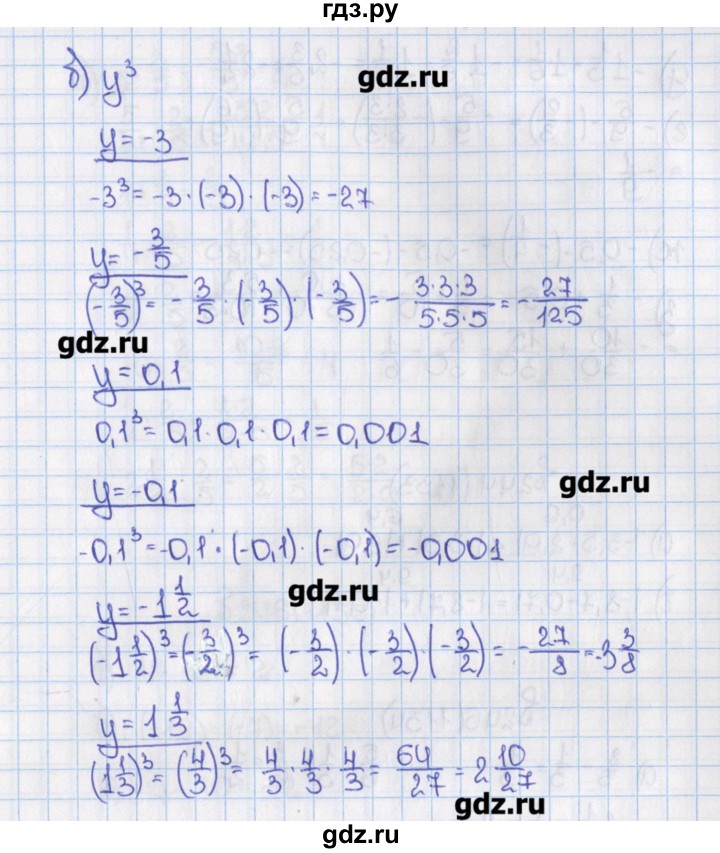 гдз.ру
б) y³
gdz.ru
y = -3
-3³ = -3 · (-3) · (-3) = -27
y = -3/5
(-3/5)³ = -3/5 · (-3/5) · (-3/5) = -3·3·3/5·5·5 = -27/125
gdz.ru
y = 0,1
0,1³ = 0,1 · 0,1 · 0,1 = 0,001
y = -0,1
gdz.ru
-0,1³ = -0,1 · (-0,1) · (-0,1) = -0,001
gdz.ru
y = -1 1/2
(-1 1/2)³ = (-3/2)³ = (-3/2) · (-3/2) · (-3/2) = -27/8 = -3 3/8
y = 1 1/3
(1 1/3)³ = (4/3)³ = 4/3 · 4/3 · 4/3 = 64/27 = 2 10/27
gdz.ru
gdz.ru